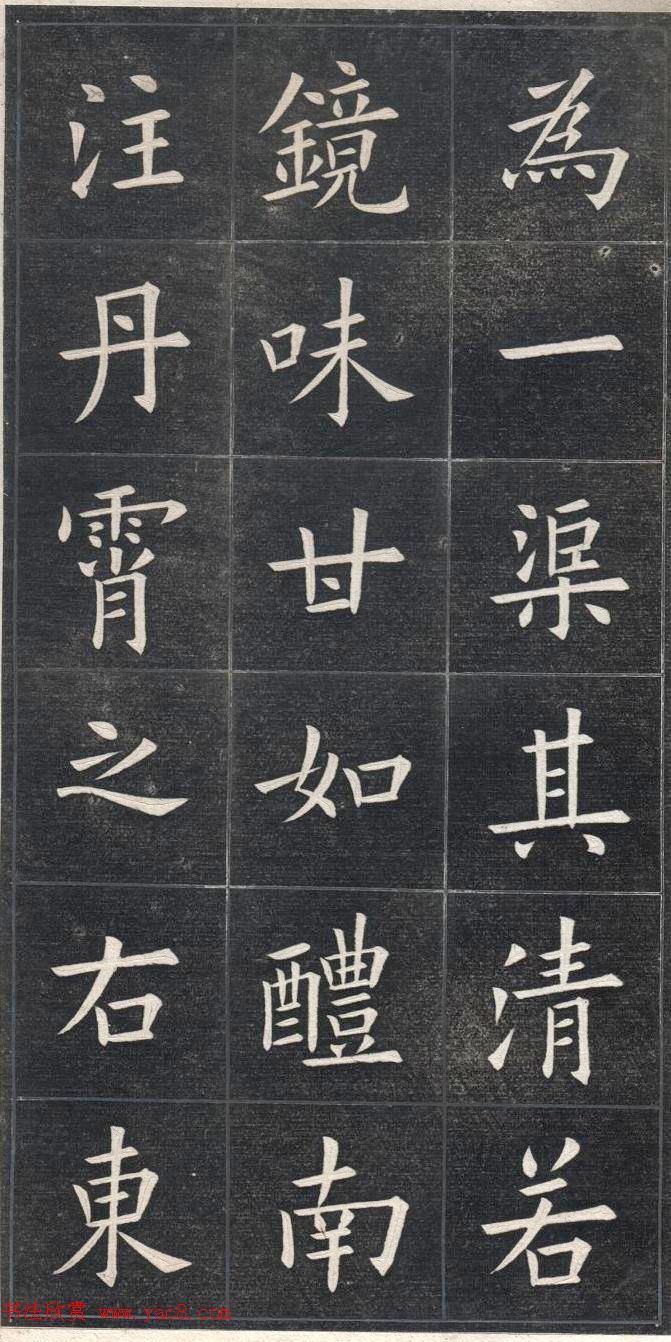 為一渠其清若
鏡味甘如醴南
注丹霄之右東
书法欣赏 www.yac8.com